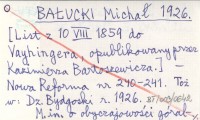 BAŁUCKI Michał 1926.
[List z 10 VIII 1859 do
Vayhingera, opublikowany przez
Kazimierza Bartoszewicza.] —
Nowa Reforma nr 240-241. Toż
w: Dz. Bydgoski r. 1926.
M.in. o obyczajowości góral-